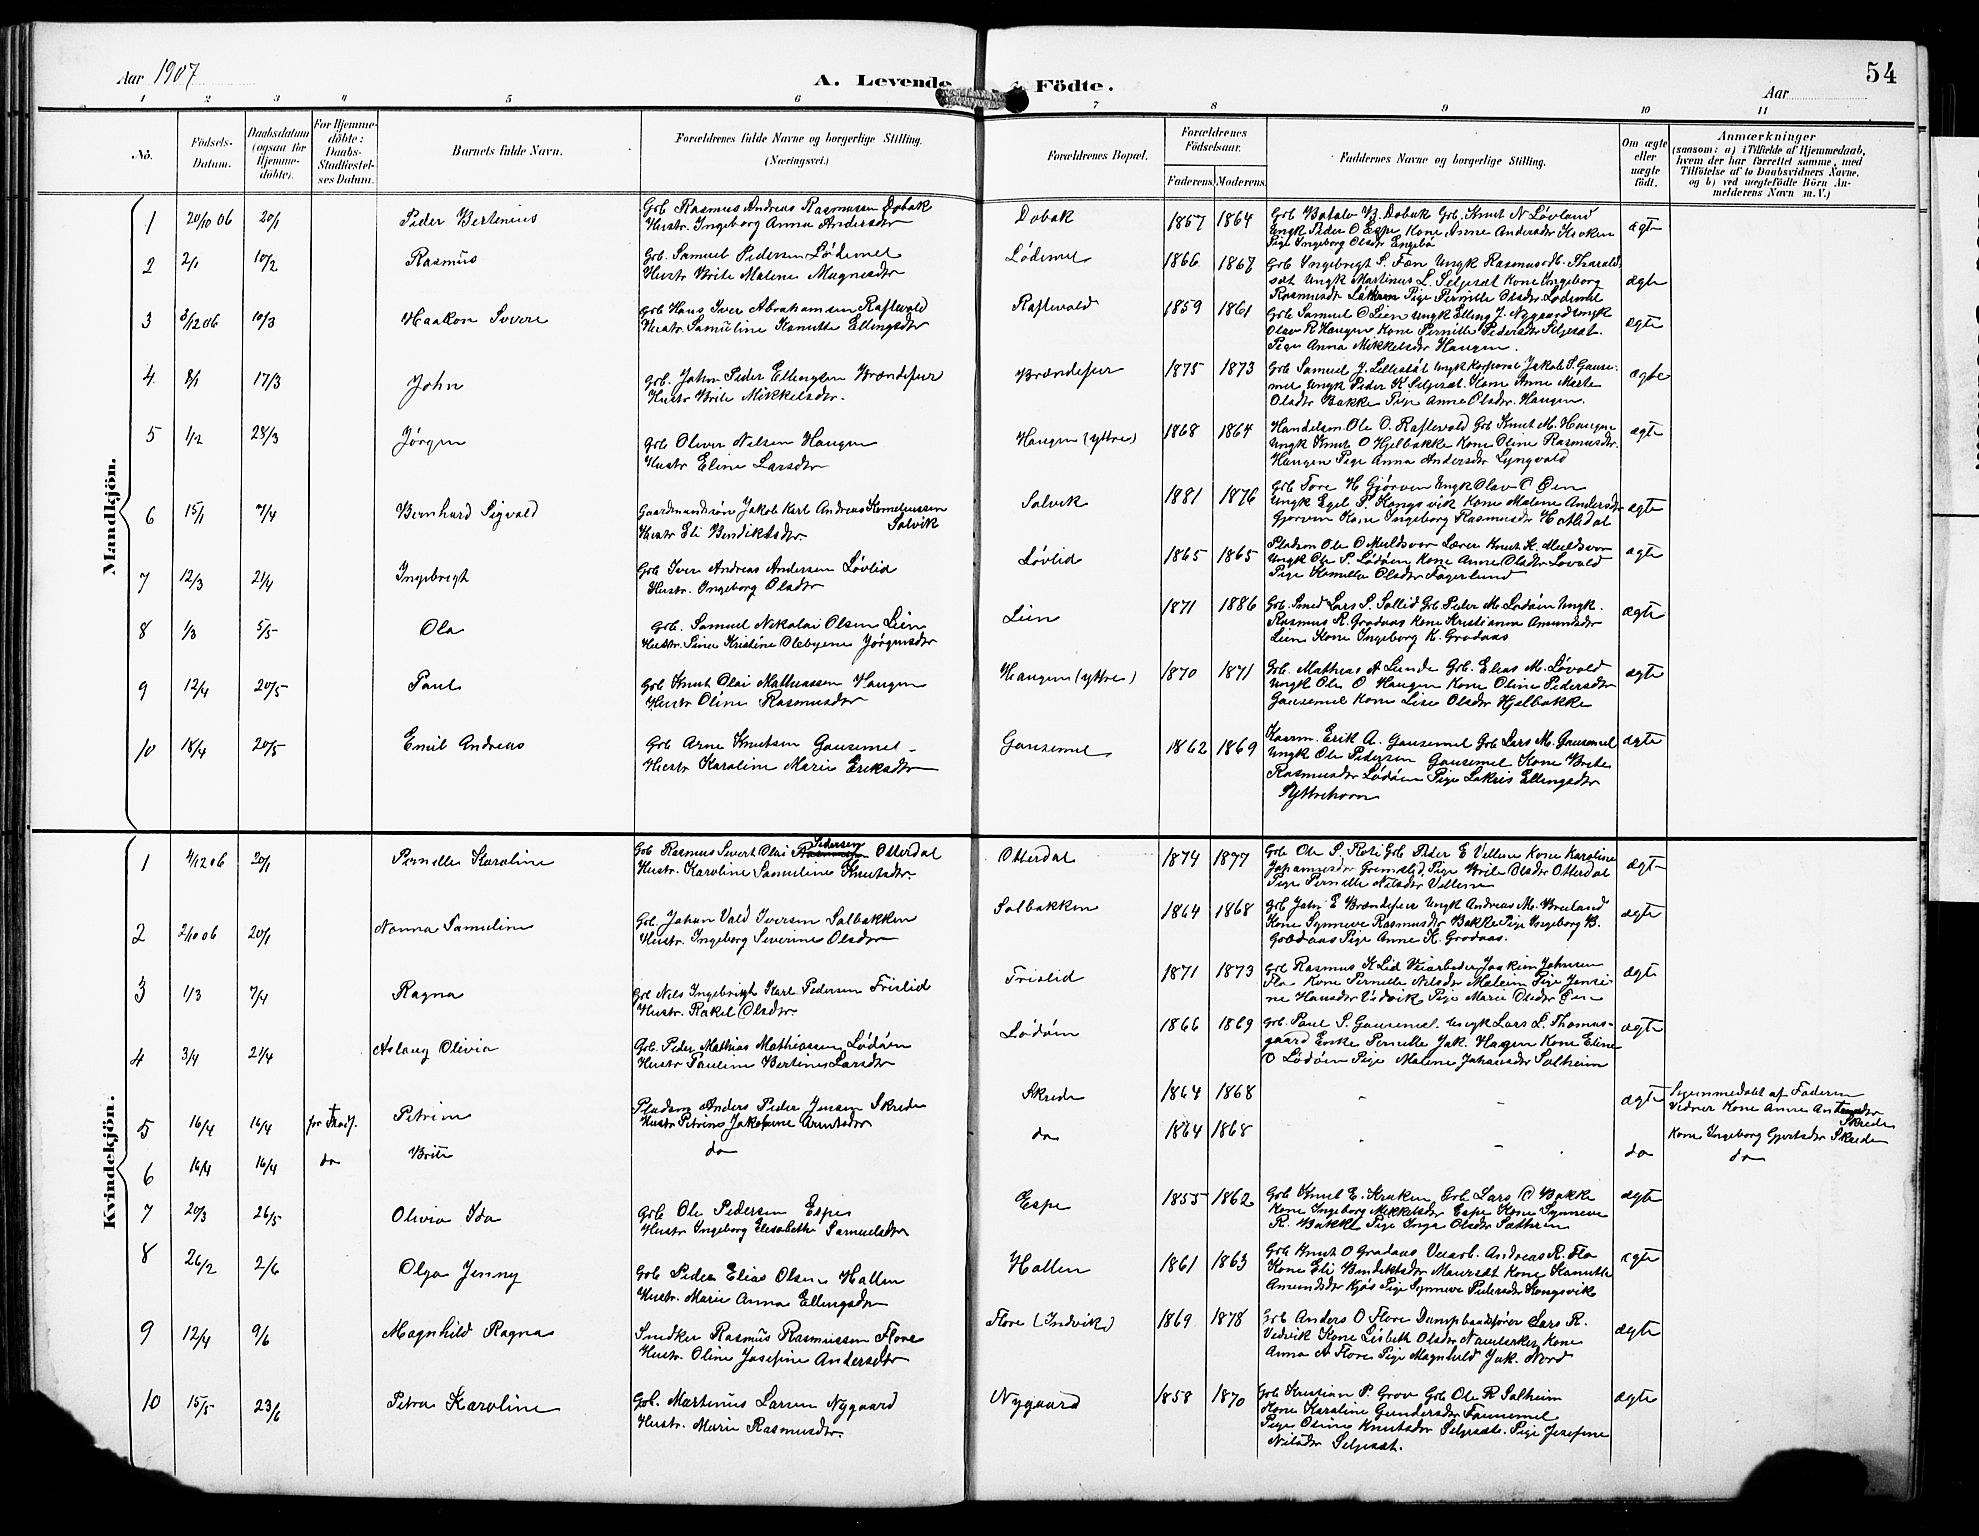 Aar 1907
A. Levende Födte.
54
Aar
1 2 3 4 5 6 7 8 9 10 11
No.
Födsels-Datum.
Daabsdatum (ogsaa for Hjemme-döbte).
For Hjemme-döbte: Daabs-Stadfæstel-ses Datum.
Barnets fulde Navn.
Forældrenes fulde Navne og borgerlige Stilling. (Næringsvei.)
Forældrenes Bopæl.
Forældrenes Födselsaar.
Faderens. Moderens.
Faddernes Navne og borgerlige Stilling.
Om ægte eller uægte födt.
Anmærkninger
(saasom: a) i Tilfælde af Hjemmedaab,
hvem der har forrettet samme, med
Tilföielse af to Daabsvidners Navne,
og b) ved uægtefödte Börn An-
melderens Navn m.V.)
Mandkjön.
1 20/10 06 20/1 Peder Bertinius Grb Rasmus Andreas Rasmussen Dobak
Hustr. Ingeborg Anna Andersdtr
Dobak 1867 1864 Grb Batalv B. Dobak Grb. Knut N Løvland
Ungk Peder O Espe Kone Anne Andersdtr Kroken
Pige Ingeborg Olsdtr Engebø
ægte
2 2/1 10/2 Rasmus Grb. Samuel Pedersen Lødemel
Hustr Brite Malene Magnesdtr
Lødemel 1866 1867 Grb Ingebrigt S. Fæn Ungk Rasmus M. Tharald-
sæt Ungk Martinus L. Seljesæt Kone Ingeborg
Rasmusdtr Løken Pige Pernille Olsdtr Lødemel
ægte
3 3/12 06 10/3 Haakon Sverre Grb Hans Iver Abrahamsen Raftevold
Hustr Samuline Kanutte Ellingsdtr
Raftevold 1859 1861 Grb Samuel O Lien Ungk Elling J. Nygaard Ungk
Olav R Haugen Kone Pernille Pedersdtr Seljesæt.
Pige Anna Mikkelsdtr Haugen.
ægte
4 8/1 17/3 John Grb. John Peder Ellingsen Brændefur
Hustr Brite Mikkelsdtr.
Brændefur 1875 1873 Grb Samuel J. Lillestøl Ungk Korporal Jakob S. Gause-
mel Ungk Peder K Seljesæt. Kone Anne Marte
Olsdtr Bakke Pige Anne Olsdtr. Haugen.
ægte
5 1/2 28/3 Jørgen Grb Oliver Nilsen Haugen
Hustr Eline Larsdtr
Haugen (yttre) 1868 1864 Handelsm Ole O. Raftevold Grb Knut M. Haugen
Ungk Knut O Hjelbakke Kone Oline Rasmusdtr.
Haugen Pige Anna Andersdtr Lyngvold
ægte
6 15/1 7/4 Bernhard Sigvald Gaardmandssøn Jakob Karl Andreas Korneliussen
Solvik
Hustr Eli Bendiktsdtr
Solvik 1881 1876 Grb Tore H Gjørven Ungk Olav O Øen
Ungk Egel P. Kongsvik Kone Malene Andersdtr
Gjørven Kone Ingeborg Rasmusdtr Hatledal
ægte
7 12/3 21/4 Ingebregt Grb Iver Andreas Andersen Løvlid
Hustr. Ingeborg Olsdtr
Løvlid 1865 1865 Pladsm Ole O Muldsvor Lærer Knut K. Muldsvor
Ungk Ole P. Lødøen Kone Anne Olsdtr Løvold
Pige Kamilla Olsdtr Fagerlund
ægte
8 1/3 5/5 Ola Grb. Samuel Nikolai Olsen Lien
Hustr. Sina Kristine Olebyene Jørgensdtr
Lien 1871 1886 Grb. Smed Lars P. Sollid Grb Peder M. Lødøen Ungk.
Rasmus R. Grodaas Kone Kristianna Amundsdtr
Lien Kone Ingeborg K. Grodaas
ægte
9 12/4 20/5 Paul Grb Knut Olai Mathiassen Haugen
Hustr Oline Rasmusdtr
Haugen (yttre) 1870 1871 Grb. Mathias A Lunde Grb. Elias M. Løvold
Ungk Ole O Haugen Kone Oline Pedersdtr
Gausemel Kone Lise Olsdtr Hjelbakke
ægte
10 18/4 20/5 Emil Andreas Grb Arne Knutsen Gausemel
Hustr Karoline Marie Eriksdtr
Gausemel 1862 1869 Kaarm. Erik A. Gausemel Grb Lars M. Gausemel
Ungk Ole Pedersen Gausemel Kone Brite
Rasmusdtr Lødøen Pige Lakris Ellingsdtr
Yttrehorn
ægte
Kvindekjön.
1 4/12 06 20/1 Pernelle Karoline Grb Rasmus Sivert Olai Pedersen Otterdal
Hustr. Karoline Samuline Knutsdtr.
Otterdal 1874 1877 Grb Ole P. Roti Grb Peder E Vellene Kone Karoline
Johannesdtr Grimelid. Pige Brite Olsdtr Otterdal
Pige Pernelle Nilsdtr Vellene
ægte
2 2/10 06 20/1 Nanna Samuline Grb. Johan Vald Iversen Solbakken
Hustr. Ingeborg Severine Olsdtr
Solbakken 1864 1868 Grb John E Brændefur Ungk Andreas M. Breiland
Kone Synneve Rasmusdtr Bakke Pige Ingeborg B.
Grodaas Pige Anne K. Grodaas.
ægte
3 1/3 7/4 Ragna Grb Nils Ingebrigt Karl Pedersen Frislid
Hustr. Rakel Olsdtr
Frislid 1871 1873 Grb Rasmus K Lid Veiarbeder Joakim Johnsen
Flo Kone Pernille Nilsdtr Maleim Pige Jensi-
ne Hansdtr Vedvik Pige Marie Olsdtr Øen
ægte
4 3/4 21/4 Aslaug Olivia Grb. Peder Mathias Mathiassen Lødøen
Hustr Pauline Bertine Larsdtr
Lødøen 1866 1869 Grb. Paul P. Gausemel. Ungk Lars L. Thomas-
gaard Enke Pernille Jak. Haugen Kone Eline
O Lødøen Pige Malene Johansdtr Solheim
ægte
5 16/4 16/4 Petrine Pladsm Anders Peder Jensen Skrede
Hustr Petrine Jakobine Arntsdtr
Skrede 1864 1868 - - ægte Hjemmedøbt af Faderen
Vidner Kone Anne
Skrede
Kone Ingeborg Gjertsdtr Skrede
6 16/4 16/4 do Brite do do 1864 1868 - - do do
7 20/3 26/5 Olivia Ida Grb. Ole Pedersen Espe
Hustr Ingeborg Elisabeth Samuelsdtr
Espe 1855 1862 Grb Knut E. Kroken Grb Lars O Bakke
Kone Ingeborg Mikkelsdtr Espe Kone Synneve
R. Bakke Pige Inga Olsdtr Sæthren
ægte
8 26/2 2/6 Olga Jenny Grb Peder Elias Olsen Hallen
Hustr. Marie Anna Ellingsdtr
Hallen 1861 1863 Grb Knut O Grodaas Veiarb. Andreas R. Flo
Kone Eli Bendiktsdtr Maursæt Kone Kanutte
Amundsdtr Kjøs Pige Synneve Pedersdtr Kongsvik
ægte
9 12/4 9/6 Magnhild Ragna Snedker Rasmus Rasmussen Flore
Hustr. Oline Josefine Andersdtr
Flore (Indvik) 1869 1878 Grb Anders O Flore Dampbaadfører Lars R.
Vedvik Kone Lisbeth Olsdtr Kone
Anna A Flore Pige Magnhild Jak. Nord
ægte
10 15/5 23/6 Petra Karoline Grb. Martinus Larsen Nygaard
Hustr. Marie Rasmusdtr.
Nygaard 1858 1870 Grb Kristian P. Grov Grb Ole R Solheim
Kone Karoline Gundersdtr Faunemel
Pige Oline Knutsdtr Seljesæt. Pige Josefine
Nilsdtr Seljesæt.
ægte